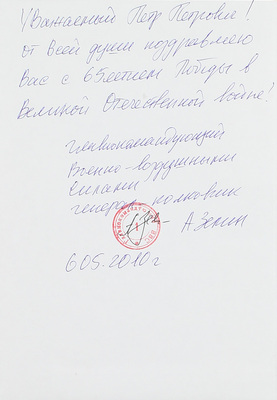 Уважаемый Пётр Петрович!
от всей души поздравляю
Вас с 65летием Победы в
Великой Отечественной войне!
Главнокомандующий
Военно-воздушными
Силами
генерал полковник
А Зелин
6 05. 2010 г